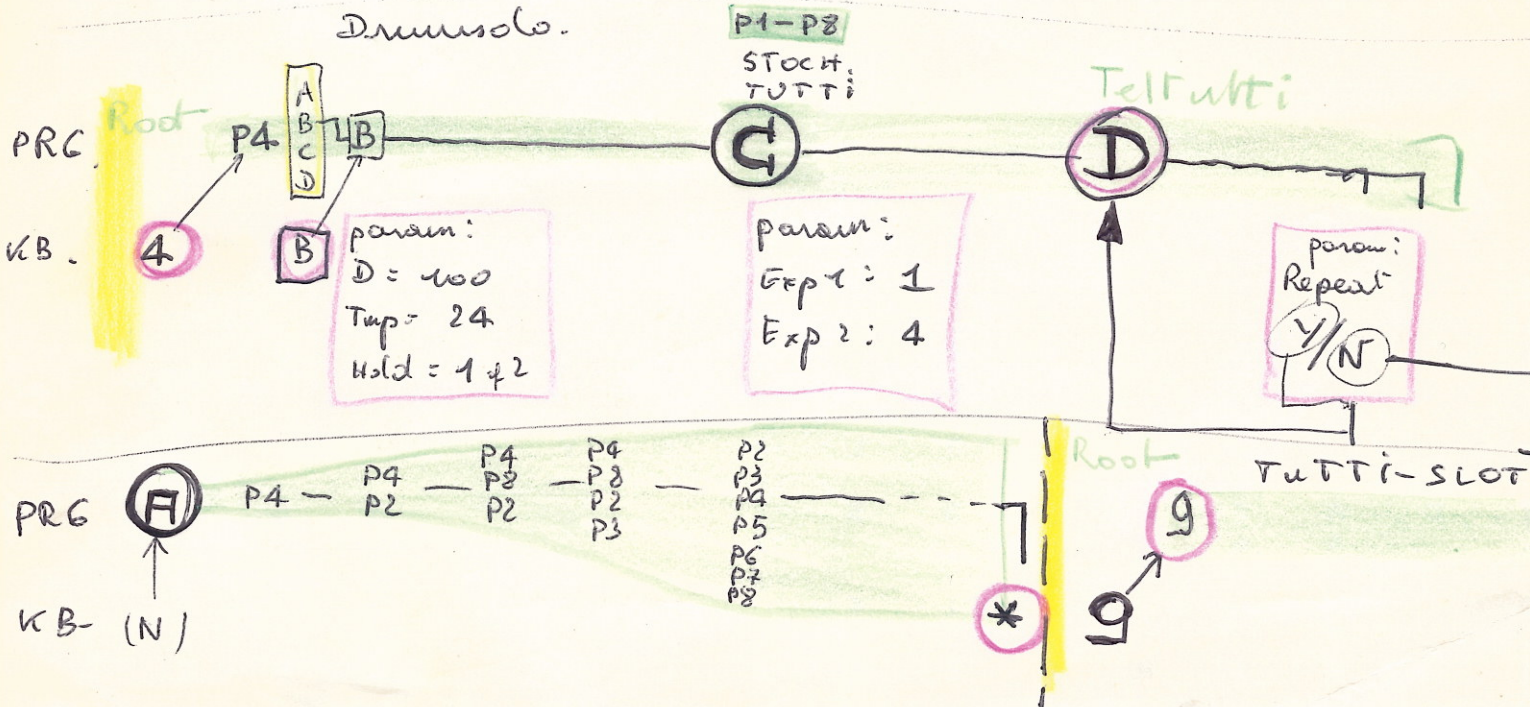 Drumsolo.
P1-P8
STOCH.
TUTTI
Root
TellTutti
PRG.
P4
A
B
C
D
B
C
D
KB.
4
B
param:
D = 100
Tmp = 24
Hold = 1 + 2
param:
Exp 1 : 1
Exp 2 : 4
param:
Repeat
Y/N
TUTTI-SLOT
Root
PRG
A
P4 — P4 P2 — P4 P8 P2 — P4 P8 P2 P3 — P2 P3 P4 P5 P6 P7 P8
9
KB- (N)
*
9